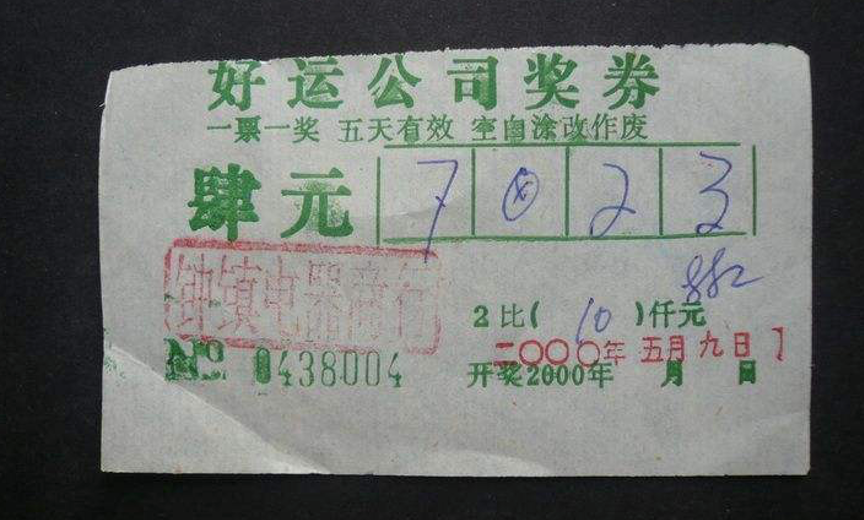 好运公司奖券
一票一奖 五天有效 空白涂改作废
肆元 7 0 2 3
钟镇电器商行
882
2比( 10 )仟元
二〇〇〇年五月九日
№ 0438004
开奖2000年 月 日